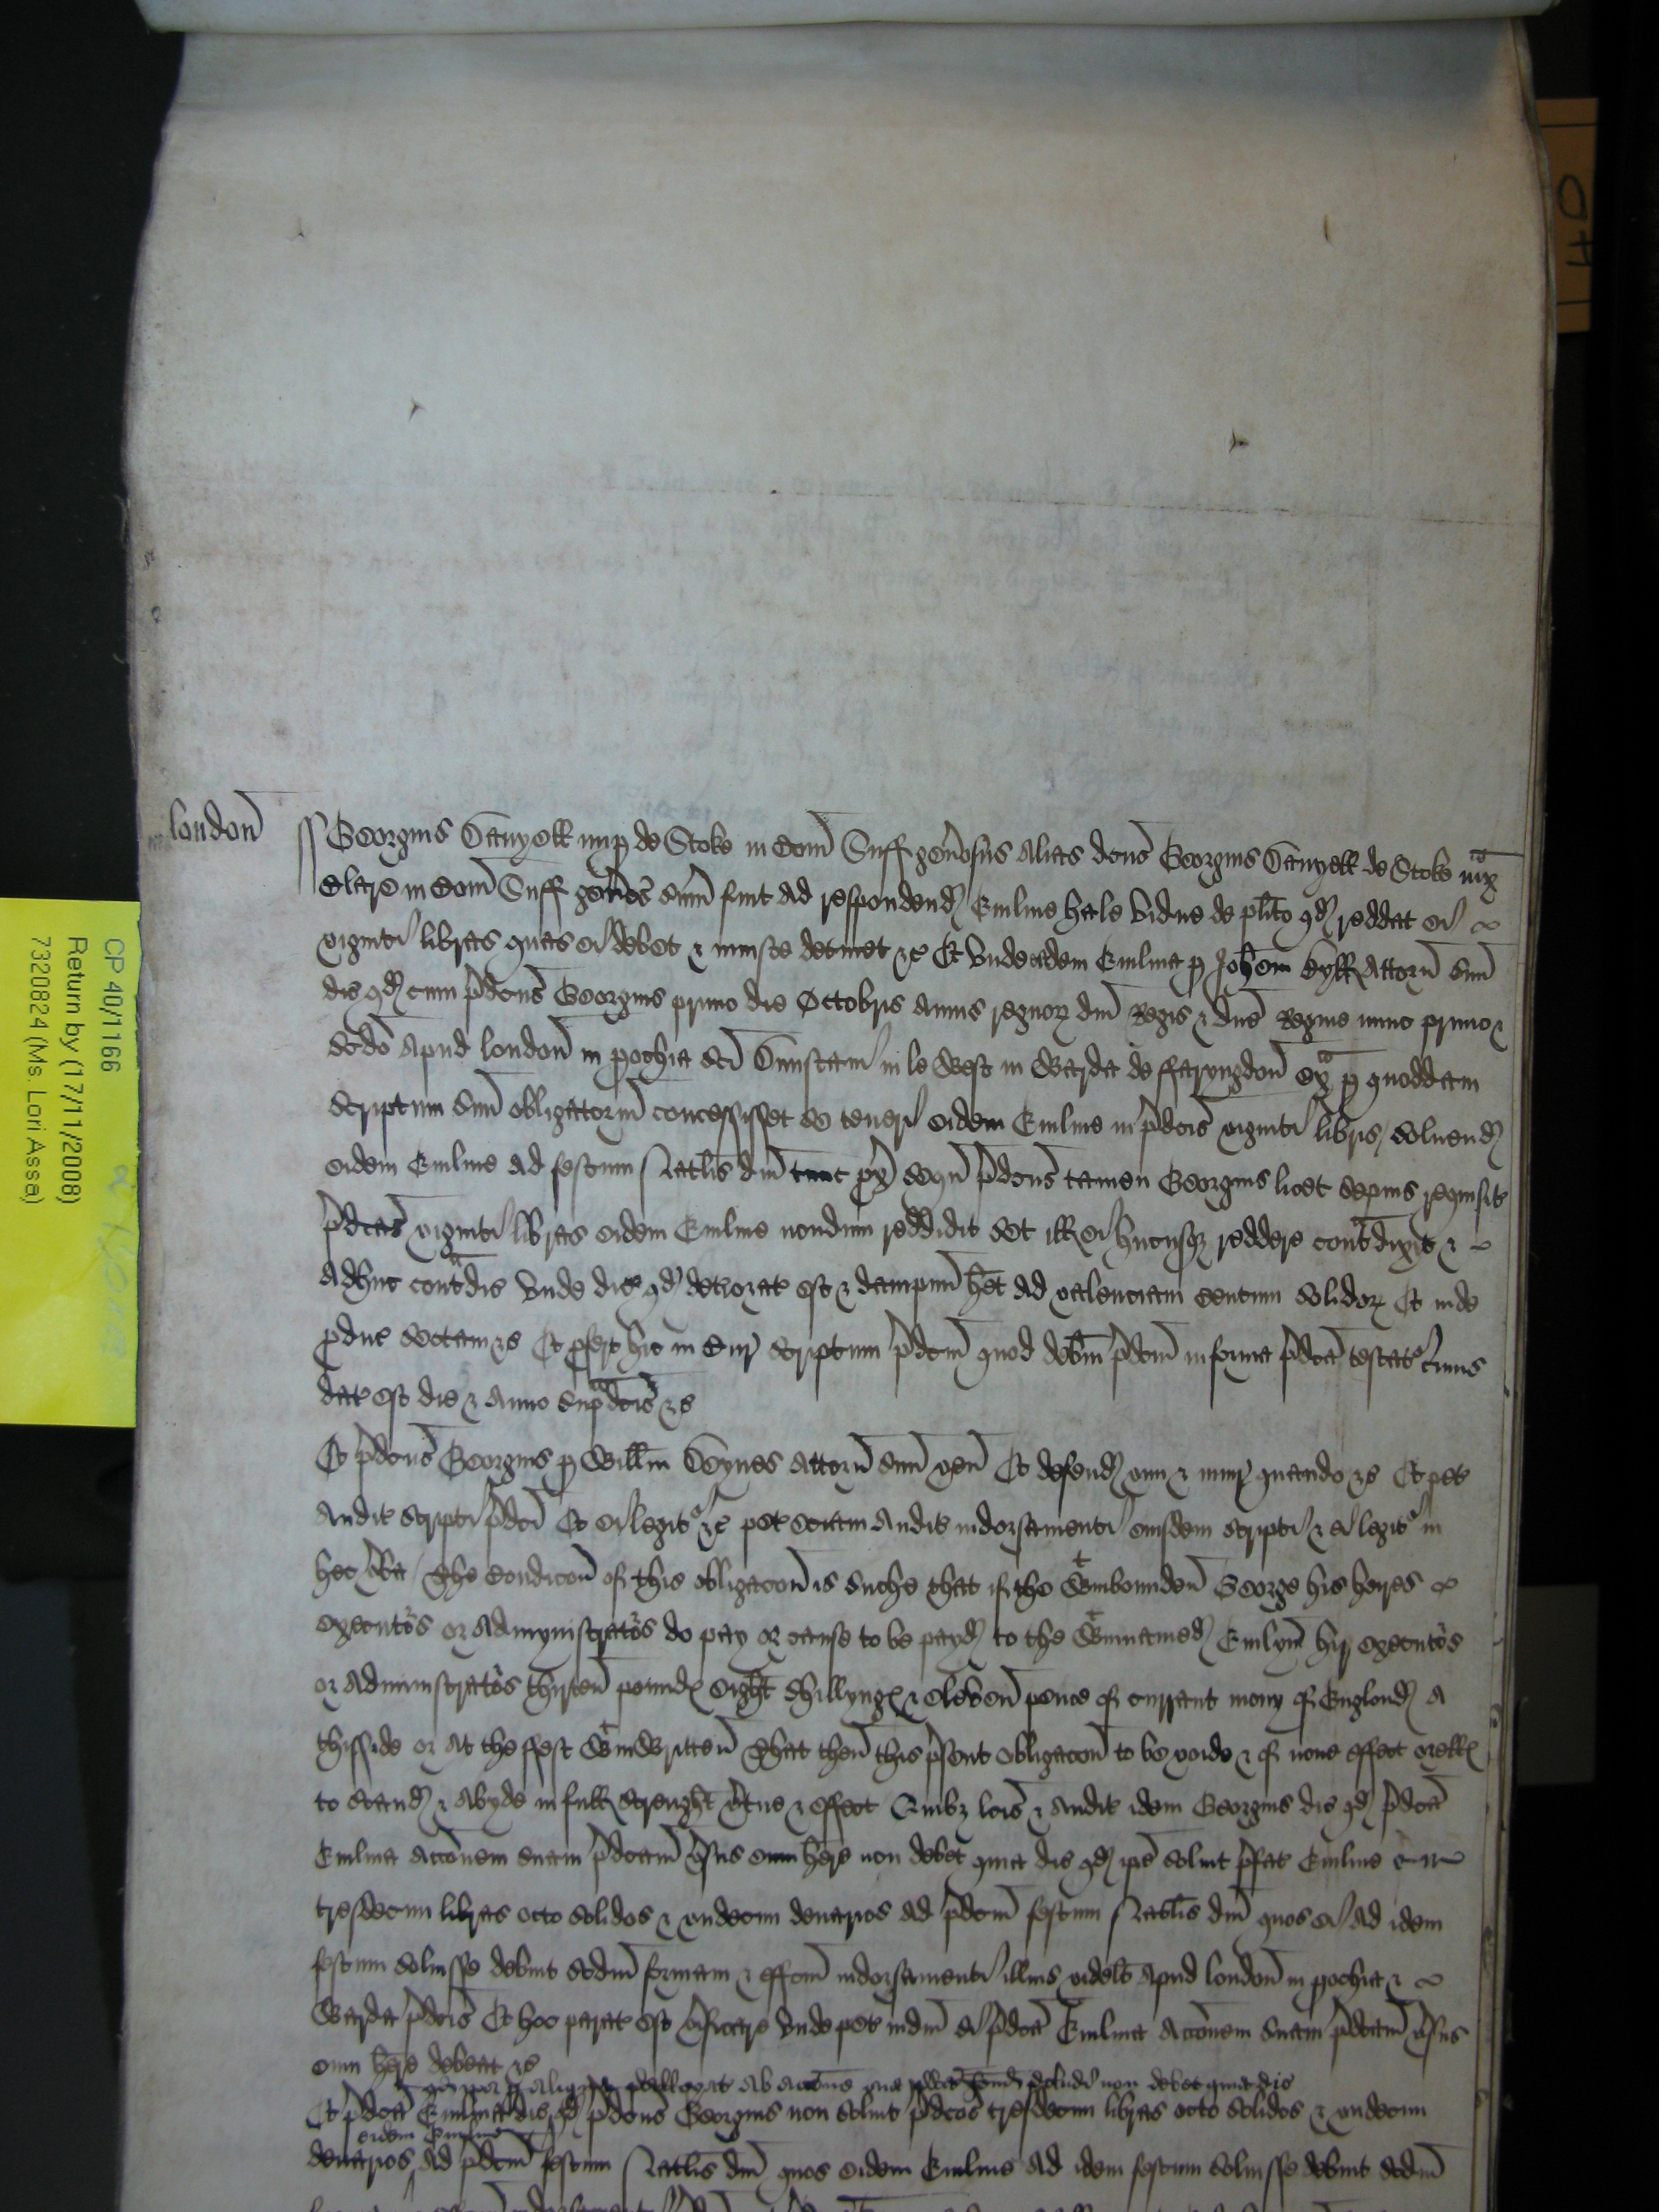 OH
CP 40/1166
Return by (17/11/2008)
73208824 (Ms. Lori Assa)
london
Georgius Danyell nup de Stoke in Com Suff genosus alias dcus Georgius Danyell de Stoke iuxa
Clare in Com Suff genos sum fuit ad respondend Emlyne hale vidue de plito qd reddat ei
viginti libras quas ei debet & iniuste detinet &c Et unde eadem Emlina p Johem Attorn suu
dic qd cum pdcus Georgius primo die Octobris annis regnor dni Regis & dne Regine nunc primo &
scdo apud london in pochia sci Dunstani in le West in Warda de ffaryngdon ex p quoddam
scriptum suu obligatorm concessisset se teneri eidem Emline in pdcis viginti libris soluend
eidem Emline ad festum Natlis dni tunc px sequ pdcus tamen Georgius licet sepius requisit
pdcas viginti libras eidem Emline nondum reddidit set ill ei hucusq reddere contdixit &
adhuc contdic unde dic qd deteriorat est & dampnu het ad valenciam centum solidor Et inde
pduc sectam &c Et pfert hic in Cur scriptum pdcm quod debm pdcm in forma pdca testat cuius
dat est die & anno supdcis &c
Et pdcus Georgius p Willm Attorn suu ven Et defend vim & iniur quando &c Et pet
audit scripti pdci Et ei legit &c pet eciam audit indorsamenti eiusdem scripti & ei legit in
hec vba The Condicon of this obligacon is suche that if the wtinbounden George his heyres
executos or admynistratos do pay or cause to be payd to the wtinnamed Emlyn hir executos
or administratos thirten pounds eight shillyngs & eleven pence of currant mony of England a
thisside or at the ffest wtinwritten That then this psent obligacon to be voide & of none effect orells
to stand & abyde in full strenght vtue & effect Quibz lcis & audit idem Georgius dic qd pdca
Emlina accionem suam pdcam vsus eum here non debet quia dic qd ipe soluit pfat Emline
tresdecim libras octo solidos & undecim denarios ad pdcm festum Natlis dni quos ei ad idem
festum soluisse debuit scdm formam & effcm indorsamenti illius videlt apud london in pochia &
Warda pdcis Et hoc parat est vificare unde pet iudm si pdca Emlina accionem suam pdcam vsus
eum here debeat &c
qd ipa p aliqua pallegat ab accione sua pdca hend pcludi non debet quia dic
Et pdca Emlina dic qd pdcus Georgius non soluit pdcas tresdecim libras octo solidos & undecim
eidem Emline
denarios ad pdcm festum Natlis dni quos eidem Emline ad idem festum soluisse debuit scdm